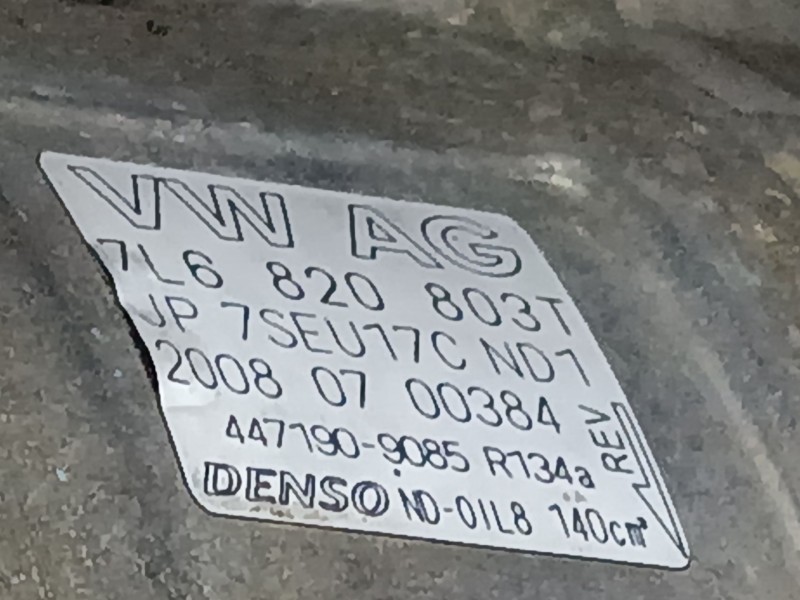 VW AG
7L6 820 803T
JP 7SEU17C ND1
2008 07 00384
447190-9085 R134a
DENSO ND-OIL8 140cm³
REV